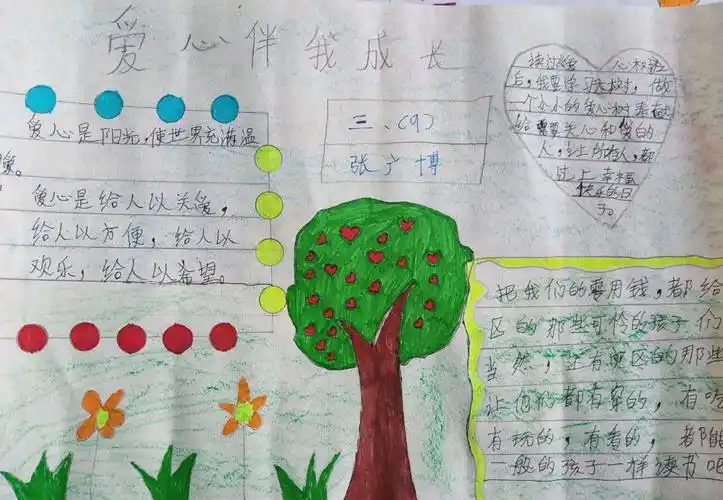 爱心伴我成长
爱心是阳光,使世界充满温
暖。
爱心是给人以关爱,
给人以方便,给人以
欢乐,给人以希望。
三、(9)
张广博
读过 心树
后,我要学习大树,做
一个小小的爱心树奉献
给需要关心和爱的
人,让所有人,都
过上幸福
快乐的日
子。
把我们的零用钱,都给
区的那些可怜的孩子们
当然,还有灾区的那些
让他们都有穿的,有吃
有玩的,有看的,都能
一般的孩子一样读书